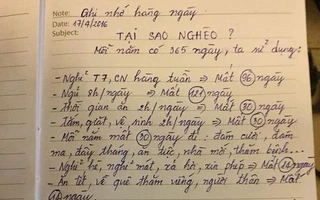 Note: Ghi nhớ hàng ngày
Date: 17/4/2016
Subject: TẠI SAO NGHÈO?
Mỗi năm có 365 ngày, ta sử dụng:
- Nghỉ T7, CN hàng tuần => Mất 96 ngày
- Ngủ 8h/ngày => Mất 121 ngày
- Thời gian ăn 2h/ngày => Mất 30 ngày
- Tắm, giặt, vệ sinh 2h/ngày => Mất 30 ngày
- Mỗi năm mất 30 ngày đi: đám cưới, đám
ma, đầy tháng, ăn tiệc, nhà mới, thăm bệnh...
- Nghỉ hè, nghỉ mát, xả hơi, xin phép => Mất ngày
- Ăn tết, về quê thăm viếng, người thân => Mất
ngày